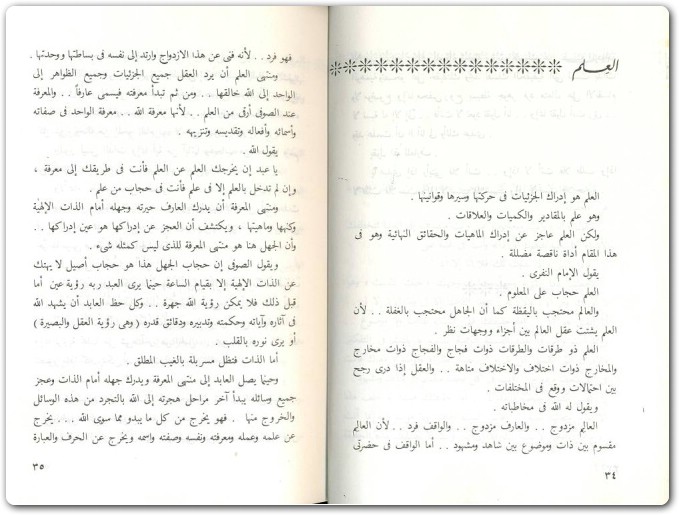 العِلم
العلم هو إدراك الجزئيات فى حركتها وسيرها وقوانينها .
وهو علم بالمقادير والكميات والعلاقات .
ولكن العلم عاجز عن إدراك الماهيات والحقائق النهائية وهو فى
هذا المقام أداة ناقصة مضللة .
يقول الإمام النفرى .
العلم حجاب على المعلوم .
والعالم محتجب باليقظة كما أن الجاهل محتجب بالغفلة . . لأن
العلم يشتت عقل العالم بين أجزاء ووجهات نظر .
العلم ذو طرقات والطرقات ذوات فجاج والفجاج ذوات مخارج
والمخارج ذوات اختلاف والاختلاف متاهة . . والعقل إذا درى رجح
بين احتمالات ووقع فى المختلفات .
ويقول له الله فى مخاطباته .
العالِم مزدوج . . والعارف مزدوج . . والواقف فرد . . لأن العالِم
مقسوم بين ذات وموضوع بين شاهد ومشهود . . أما الواقف فى حضرتى
٣٤
فهو فرد . . لأنه فنى عن هذا الازدواج وارتد إلى نفسه فى بساطتها ووحدتها .
ومنتهى العلم أن يرد العقل جميع الجزئيات وجميع الظواهر إلى
الواحد إلى الله خالقها . . ومن ثم تبدأ معرفته فيسمى عارفاً . . والمعرفة
عند الصوفى أرقى من العلم . . لأنها معرفة الله . . معرفة الواحد فى صفاته
وأسمائه وأفعاله وتقديسه وتنزيهه .
يقول الله .
يا عبد إن يخرجك العلم عن العلم فأنت فى طريقك إلى معرفة ،
وإن لم تدخل بالعلم إلا فى علم فأنت فى حجاب من علم .
ومنتهى المعرفة أن يدرك العارف حيرته وجهله أمام الذات الإلهية
وكنهها وماهيتها ، ويكتشف أن العجز عن إدراكها هو عين إدراكها . .
وأن الجهل هنا هو منتهى المعرفة للذى ليس كمثله شىء .
ويقول الصوفى إن حجاب الجهل هذا هو حجاب أصيل لا يهتك
عن الذات الإلهية إلا بقيام الساعة حينما يرى العبد ربه رؤية عين أما
قبل ذلك فلا يمكن رؤية الله جهرة . . وكل حظ العابد أن يشهد الله
فى آثاره وآياته وحكمته وتدبيره ودقائق قدره ( وهى رؤية العقل والبصيرة )
أو يرى نوره بالقلب .
أما الذات فتظل مسربلة بالغيب المطلق .
وحينما يصل العابد إلى منتهى المعرفة ويدرك جهله أمام الذات وعجز
جميع وسائله يبدأ آخر مراحل هجرته إلى الله بالتجرد من هذه الوسائل
والخروج منها . فهو يخرج من كل ما يبدو مما سوى الله . . . يخرج
عن علمه وعمله ومعرفته ونفسه وصفته واسمه ويخرج عن الحرف والعبارة
٣٥